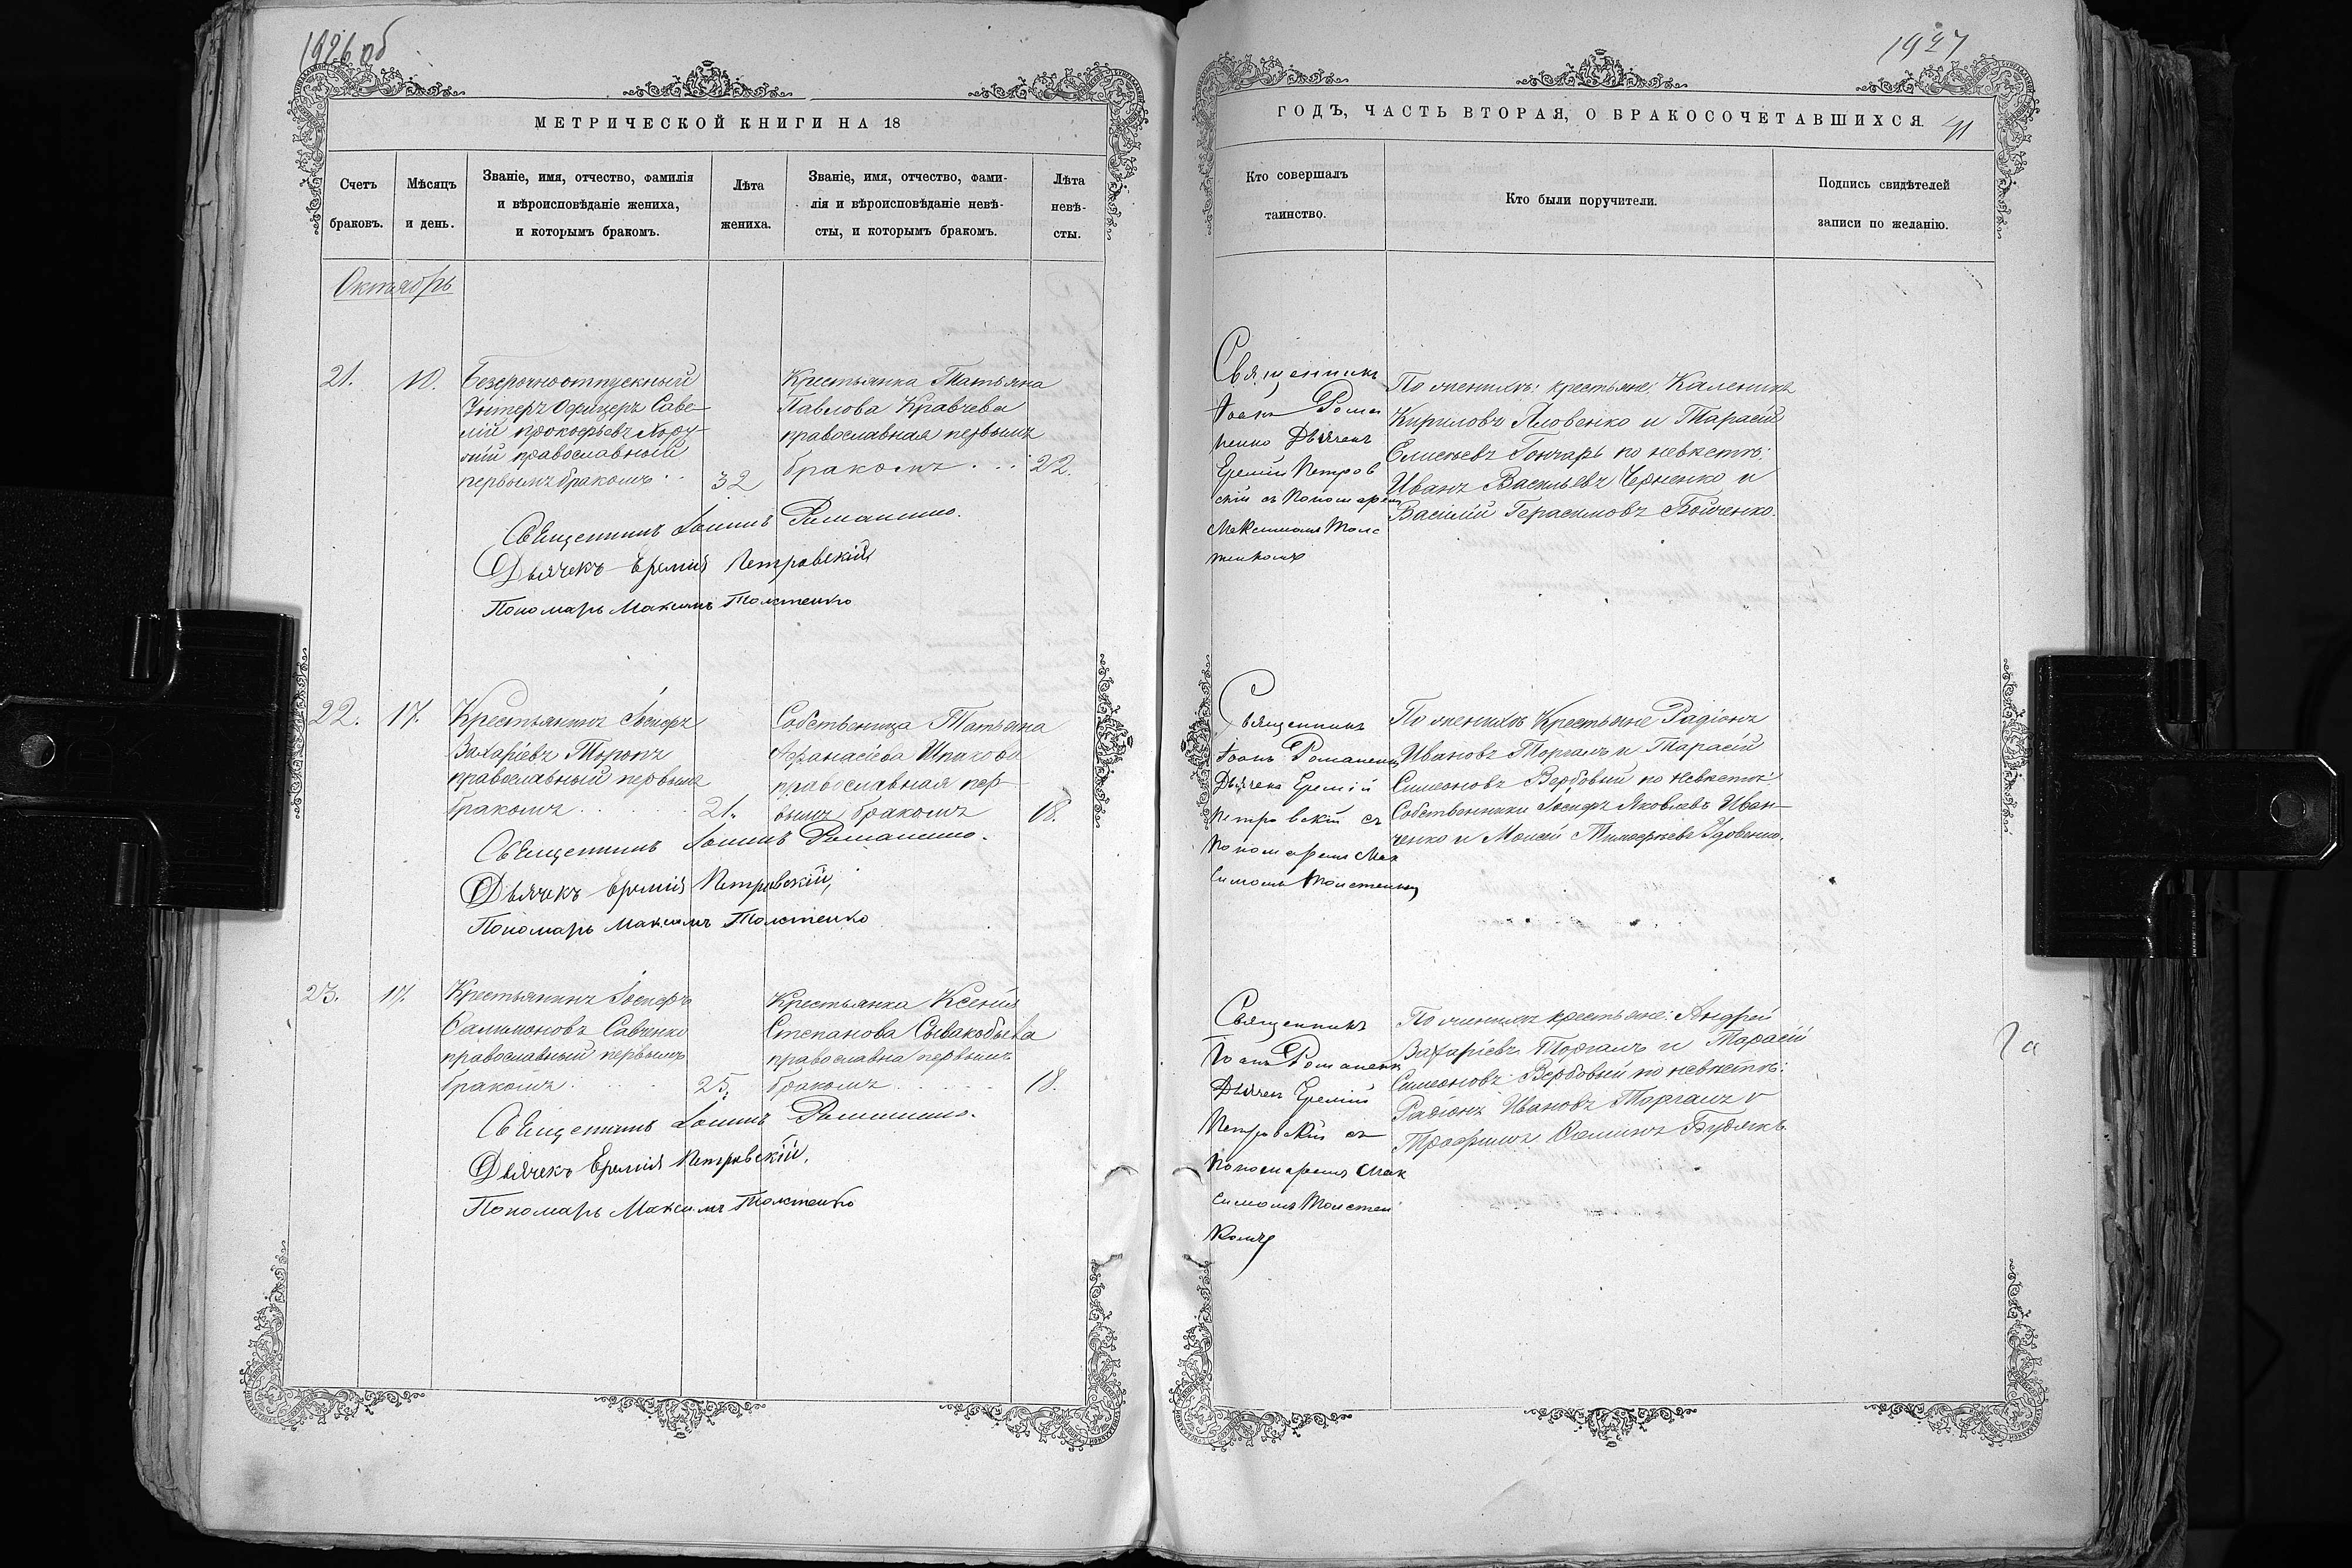 1926 об
МЕТРИЧЕСКОЙ КНИГИ НА 18
Счетъ
браковъ.
Мѣсяцъ
и день.
Званіе, имя, отчество, фамилія
и вѣроисповѣданіе жениха,
и которымъ бракомъ.
Лѣта
жениха.
Званіе, имя, отчество, фами-
лія и вѣроисповѣданіе невѣ-
сты, и которымъ бракомъ.
Лѣта
невѣ-
сты.
Октябрь
21.
10.
Безсрочноотпускный
Унтеръ Офицеръ Саве-
лій Прокофьевъ Хору-
жій православный
первымъ бракомъ
32
Крестьянка Татьяна
Павлова Кравчева
православная первымъ
бракомъ
22.
Священникъ Іоаннъ Романенко.
Дьячекъ Еремія Петровскій
Пономарь Максимъ Толстенко
22.
17.
Крестьянинъ Іосифъ
Захаріевъ
православный первымъ
бракомъ
21.
Собственица Татьяна
Афанасіева Шпакова
православная пер-
вымъ бракомъ
18.
Священникъ Іоаннъ Романенко.
Дьячекъ Еремія Петровскій,
Пономарь Максимъ Толстенко
23.
17.
Крестьянинъ Іосифъ
Савченко
православный первымъ
бракомъ
25.
Крестьянка Ксенія
Степанова Сывакобыева
православна первымъ
бракомъ
18.
Священникъ Іоаннъ Романенко.
Дьячекъ Еремія Петровскій.
Пономарь Максимъ Толстенко
1927
ГОДЪ, ЧАСТЬ ВТОРАЯ, О БРАКОСОЧЕТАВШИХСЯ.
41
Кто совершалъ
таинство.
Кто были поручители.
Подпись свидѣтелей
записи по желанію.
Священникъ
Іоанъ Рома
ненко Дьячекъ
Еремій Петров
скій съ Пономаремъ
Максимомъ Толс
тенкомъ
По женихѣ: крестьяне: Каленикъ
Кириловъ Яловенко и Тарасій
Елисѣевъ Гончаръ по невѣстѣ:
Иванъ Васильевъ Черненко и
Василій Герасимовъ Бойченко.
Священникъ
Іоанъ Романенко
Дьячекъ Еремій
Петровскій съ
Пономаремъ Мак
симомъ Толстенко
По женихѣ Крестьяне Радіонъ
Ивановъ Торгалъ и Тарасій
Симеоновъ Вербовый по невѣстѣ:
Собственники Іосифъ Яковлевъ Иван-
ченко и Моисей Тимофѣевъ Удовенко.
Священникъ
Іоанъ Романенко
Дьячекъ Еремій
Петровскій съ
Пономаремъ Мак
симомъ Толстен
комъ
По женихѣ крестьяне: Андрей
Захаріевъ Торгалъ и Тарасій
Симеоновъ Вербовый по невѣстѣ:
Радіонъ Ивановъ Торгалъ и
Трофимъ Будякъ